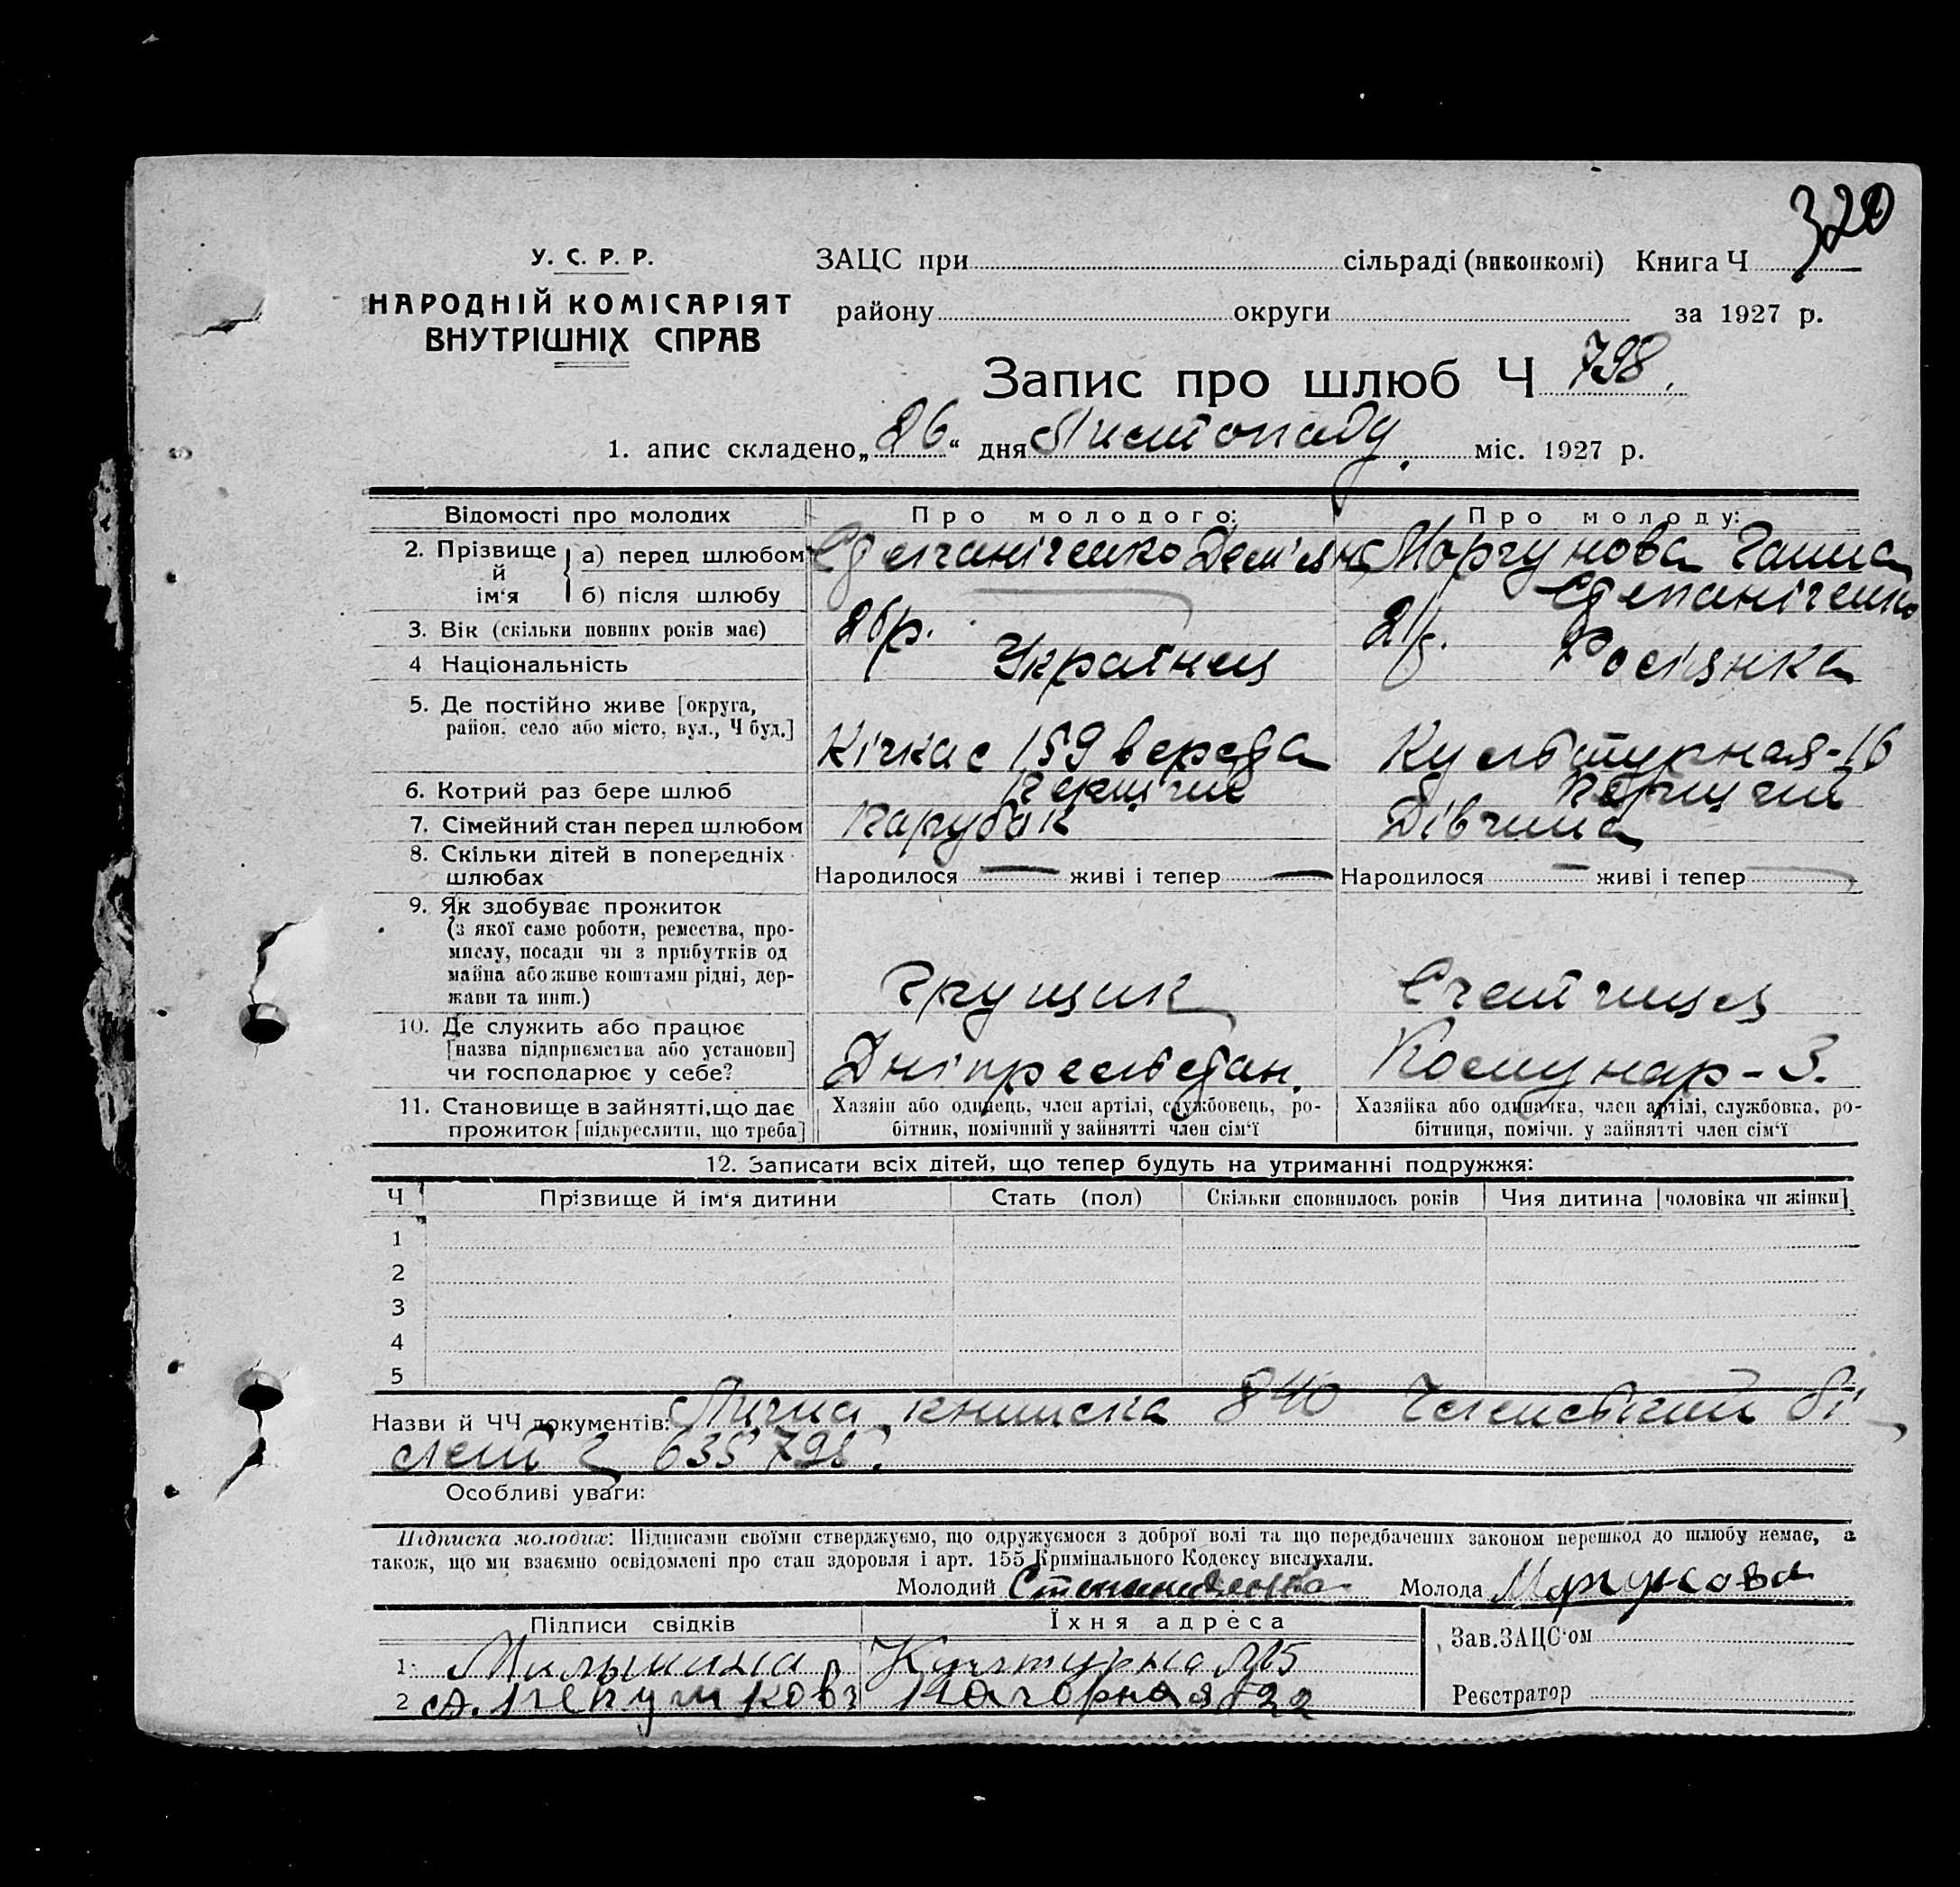 320
У. С. Р. Р.
НАРОДНІЙ КОМІСАРІЯТ
ВНУТРІШНІХ СПРАВ
ЗАЦС при сільраді (виконкомі) Книга Ч
району округи за 1927 р.
Запис про шлюб Ч 798.
1. апис складено „26“ дня Листопаду міс. 1927 р.
Відомості про молодих Про молодого: Про молоду:
2. Прізвище й ім‘я а) перед шлюбом Степаніченко Дем'ян Моргунова Ганна
б) після шлюбу Степаніченко
3. Вік (скільки повних років має) 26 р. 21 р.
4 Національність Українец Росіянка
5. Де постійно живе [округа,
район, село або місто, вул., Ч буд.] Кічкас 159 верста Культурная-16
6. Котрий раз бере шлюб Перший Перший
7. Сімейний стан перед шлюбом Парубок Дівчина
8. Скільки дітей в попередніх
шлюбах Народилося — живі і тепер — Народилося — живі і тепер —
9. Як здобуває прожиток
(з якої саме роботи, ремества, про-
мислу, посади чи з прибутків од
майна або живе коштами рідні, дер-
жави та инш.) Грущик Счетчиця
10. Де служить або працює
[назва підприємства або установи]
чи господарює у себе? Дніпрельстан. Комунар-З.
11. Становище в зайнятті, що дає
прожиток [підкреслити, що треба]
Хазяін або одинець, член артілі, службовець, ро-
бітник, помічний у зайнятті член сім‘ї
Хазяйка або одиначка, член артілі, службовка, ро-
бітниця, помічн. у зайнятті член сім‘ї
12. Записати всіх дітей, що тепер будуть на утриманні подружжя:
Ч Прізвище й ім‘я дитини Стать (пол) Скільки сповнилось років Чия дитина [чоловіка чи жінки]
1
2
3
4
5
Назви й ЧЧ документів: Лична книжка 840 Членський бі
лет 635795.
Особливі уваги:
Підписка молодих: Підписами своїми стверджуємо, що одружуємося з доброї волі та що передбачених законом перешкод до шлюбу немає, а
також, що ми взаємно освідомлені про стан здоровля і арт. 155 Кримінального Кодексу вислухали.
Молодий Степаниченко Молода Моргунова
Підписи свідків Їхня адреса
1. Культурна №15
2 Нагорная 22
Зав. ЗАЦС‘ом
Реєстратор